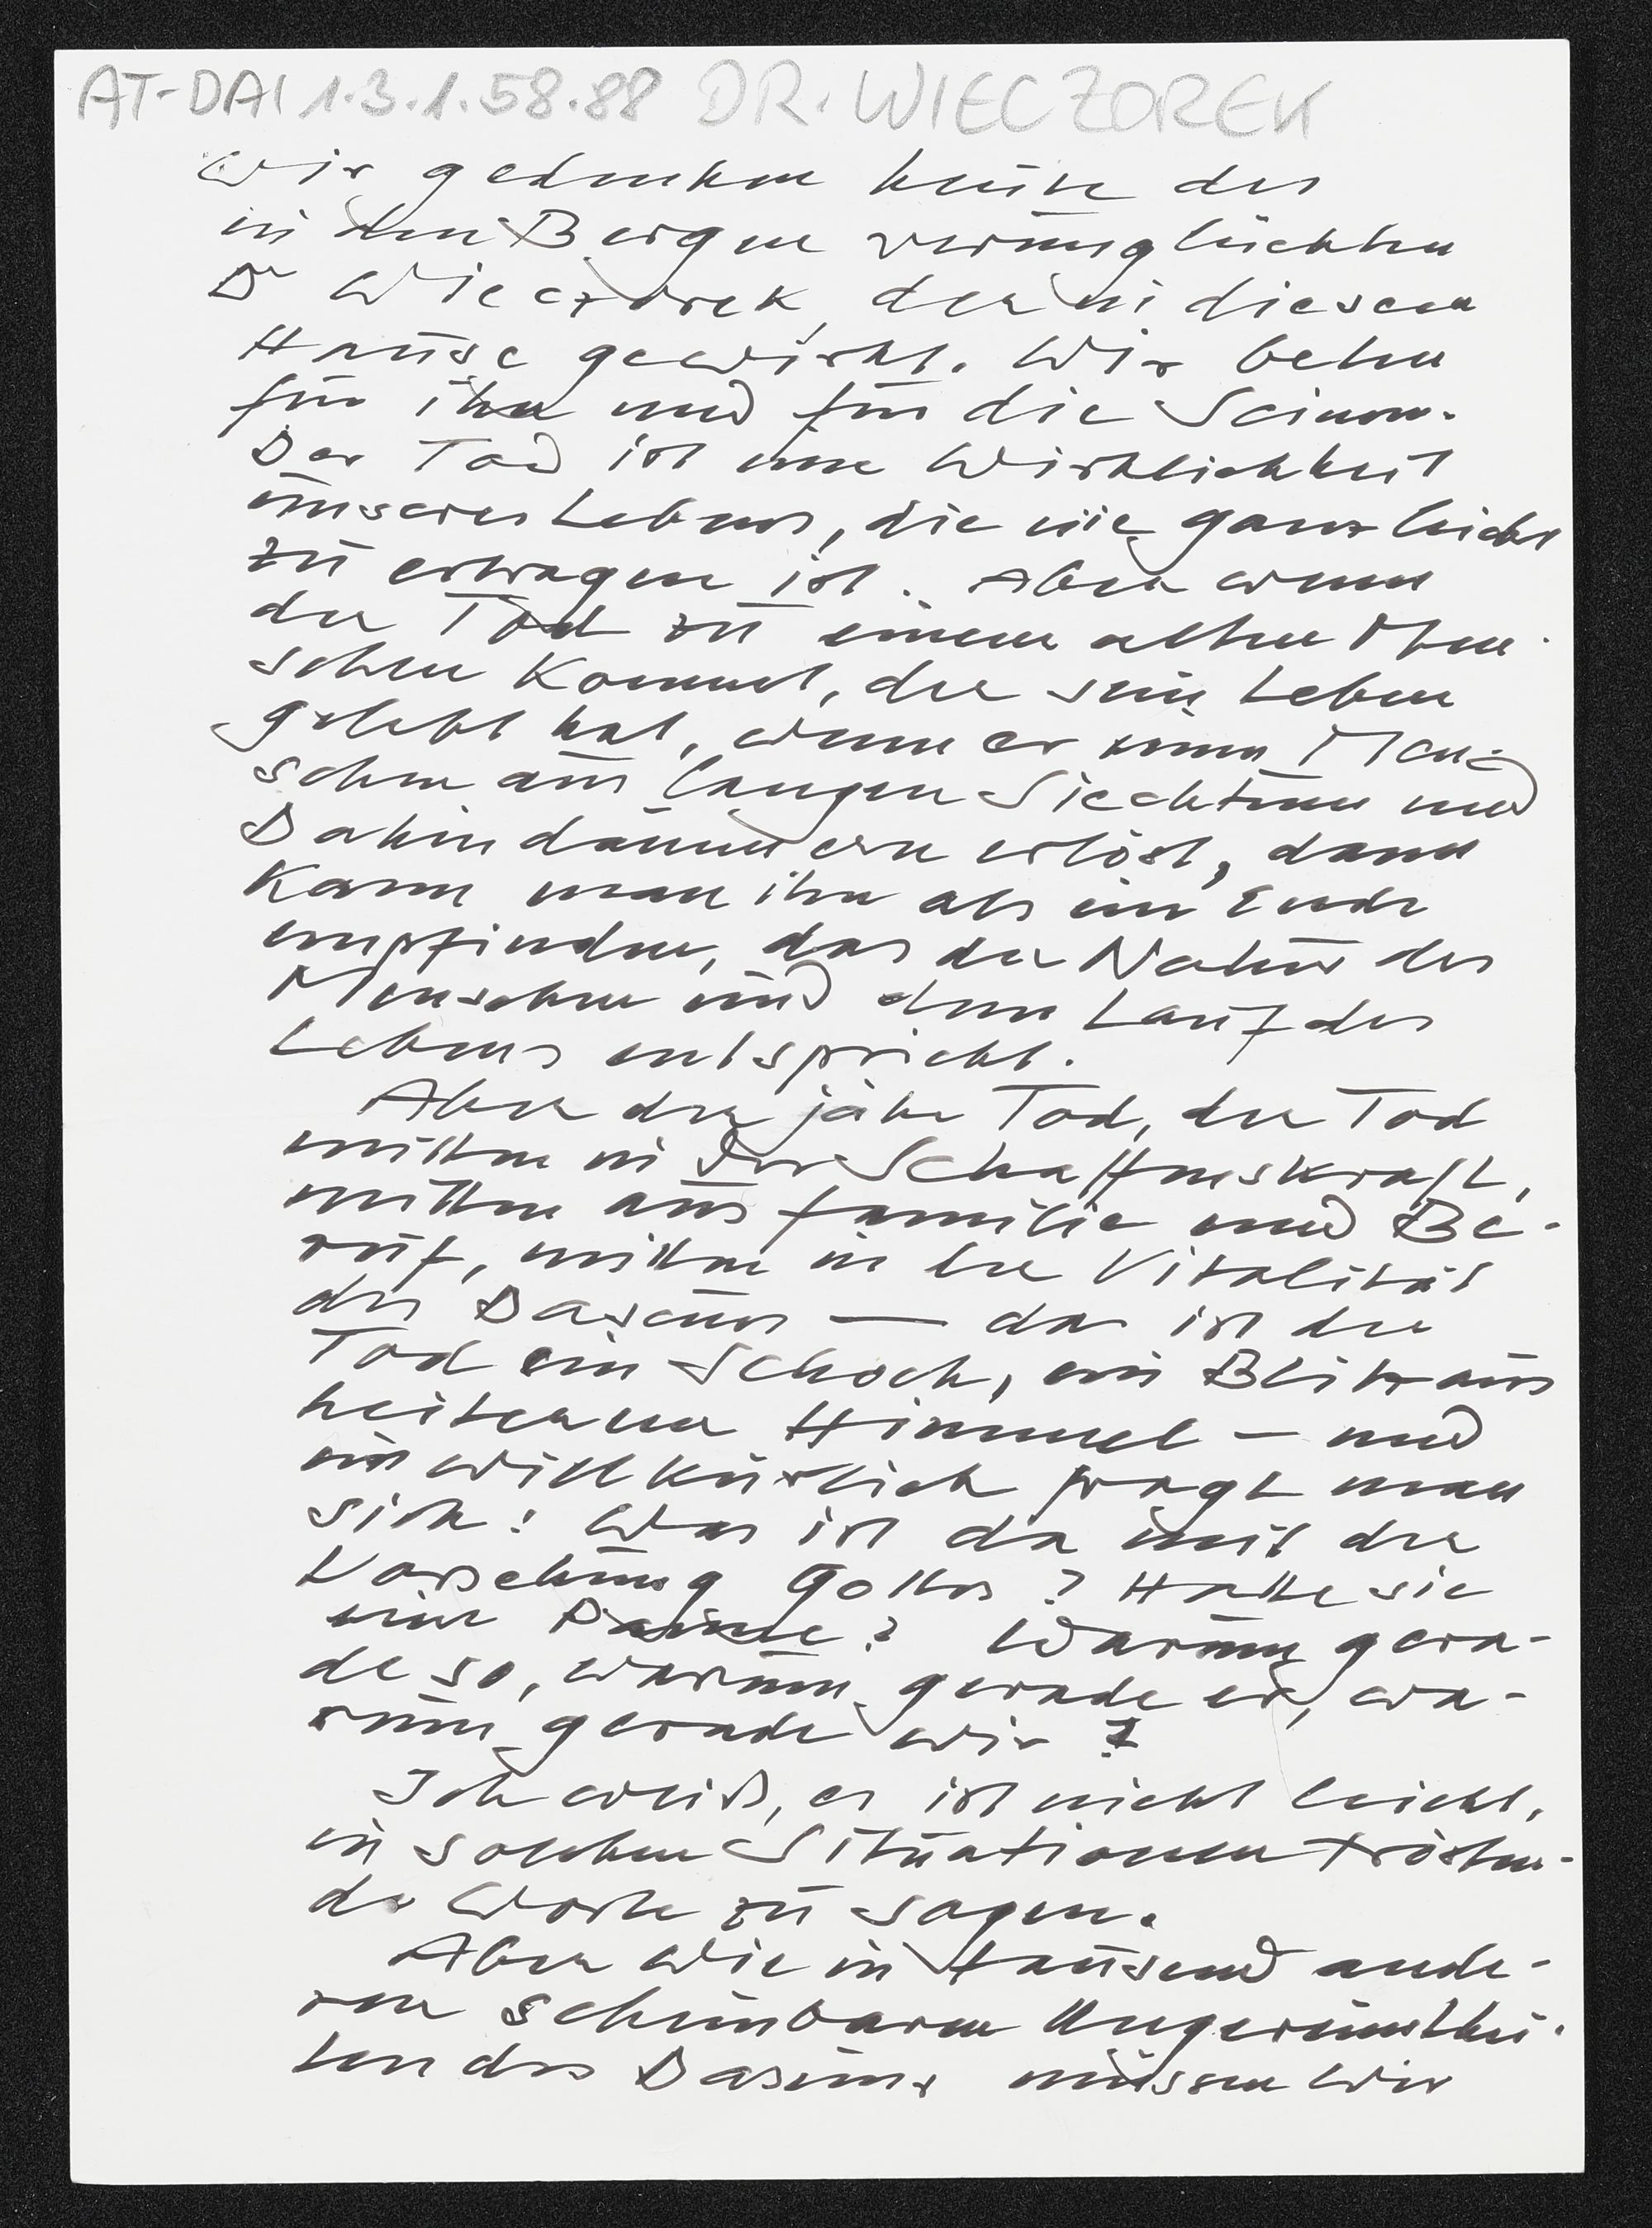 AT-DAI 1.3.1.58.88 DR. WIECZOREK
Wir gedenken heute des
in den Bergen verunglückten
Dr Wieczorek, der in diesem
Hause gewirkt. Wir beten
für ihn und für die Seinen.
Der Tod ist eine Wirklichkeit
unseres Lebens, die nie ganz leicht
zu ertragen ist. Aber wenn
der Tod zu einem alten Men-
schen kommt, der sein Leben
gelebt hat, wenn er einen Men-
schen aus langen Siechtum und
Dahindämmern erlöst, dann
kann man ihn als ein Ende
empfinden, das der Natur des
Menschen und dem Lauf des
Lebens entspricht.
Aber der jähe Tod, der Tod
mitten in der Schaffenskraft,
mitten aus Familie und Be-
ruf, mitten in der Vitalität
des Daseins — da ist der
Tod ein Schock, ein Blitz aus
heiterem Himmel — und
unwillkürlich fragt man
sich: Was ist da mit der
Vorsehung Gottes? Hatte sie
eine Panne? Warum gera-
de so, warum gerade er, wa-
rum gerade wir?
Ich weiß, es ist nicht leicht,
in solchen Situationen trösten-
de Worte zu sagen.
Aber wie in tausend ande-
ren scheinbaren Ungereimthei-
ten des Daseins müssen wir